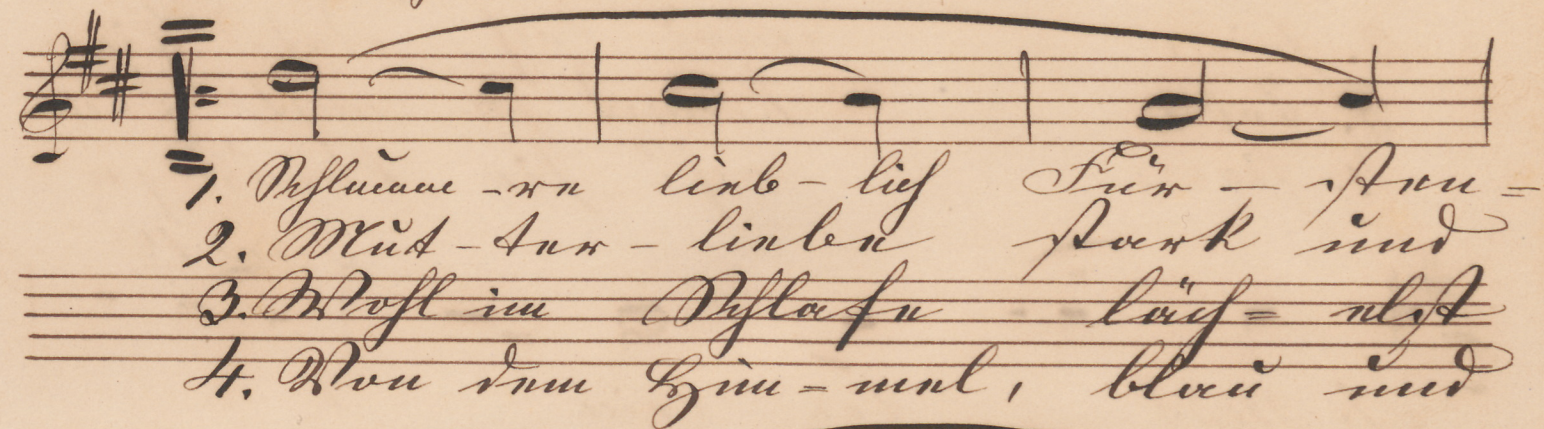 1. Schlumm-re lieb-lich Für-sten=
2. Mut-ter-liebe stark und
3. Wohl im Schlafe läch=elst
4. Von dem Him=mel, blau und